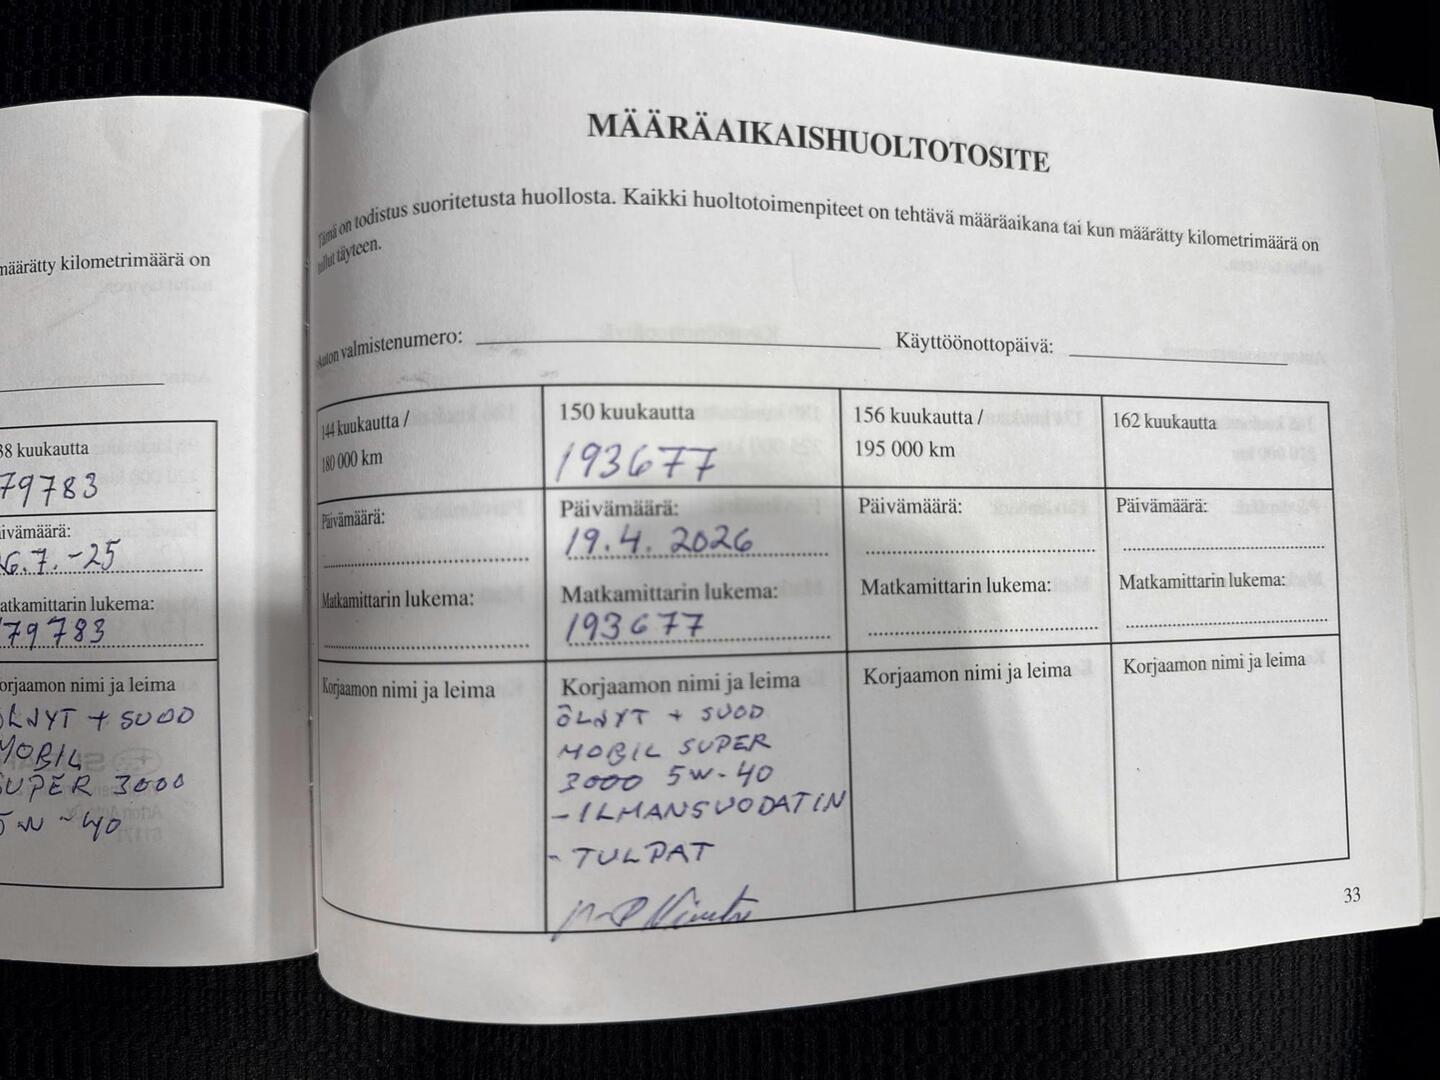 määrätty kilometrimäärä on
38 kuukautta
79783
äivämäärä:
26.7.-25
atkamittarin lukema:
179783
orjaamon nimi ja leima
ÖLJYT + SUOD
MOBIL
SUPER 3000
5W-40
MÄÄRÄAIKAISHUOLTOTOSITE
Tämä on todistus suoritetusta huollosta. Kaikki huoltotoimenpiteet on tehtävä määräaikana tai kun määrätty kilometrimäärä on
tullut täyteen.
Auton valmistenumero: Käyttöönottopäivä:
144 kuukautta /
180 000 km
Päivämäärä:
Matkamittarin lukema:
Korjaamon nimi ja leima
150 kuukautta
193677
Päivämäärä:
19.4. 2026
Matkamittarin lukema:
193677
Korjaamon nimi ja leima
ÖLJYT + SUOD
MOBIL SUPER
3000 5W-40
- ILMANSUODATIN
- TULPAT
156 kuukautta /
195 000 km
Päivämäärä:
Matkamittarin lukema:
Korjaamon nimi ja leima
162 kuukautta
Päivämäärä:
Matkamittarin lukema:
Korjaamon nimi ja leima
33